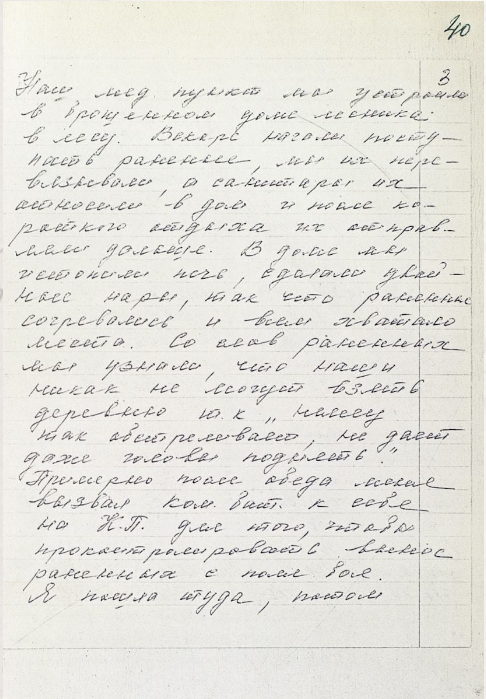 40
3
Наш мед. пункт мы устроили
в брошенном доме лесника
в лесу. Вскоре начали посту-
пать раненые, мы их пере-
вязывали, а санитары их
относили в дом и после ко-
роткого отдыха их отправ-
ляли дальше. В доме мы
истопили печь, сделали двой-
ные нары, так что раненые
согревались и всем хватало
места. Со слов раненных
мы узнали, что наши
никак не могут взять
деревню т.к „немец
так обстреливает, не дает
даже головы поднять".
Примерно после обеда меня
вызвал ком. бат. к себе
на Н.П. для того, чтобы
проконтролировать вынос
раненных с поля боя.
Я пошла туда, потом